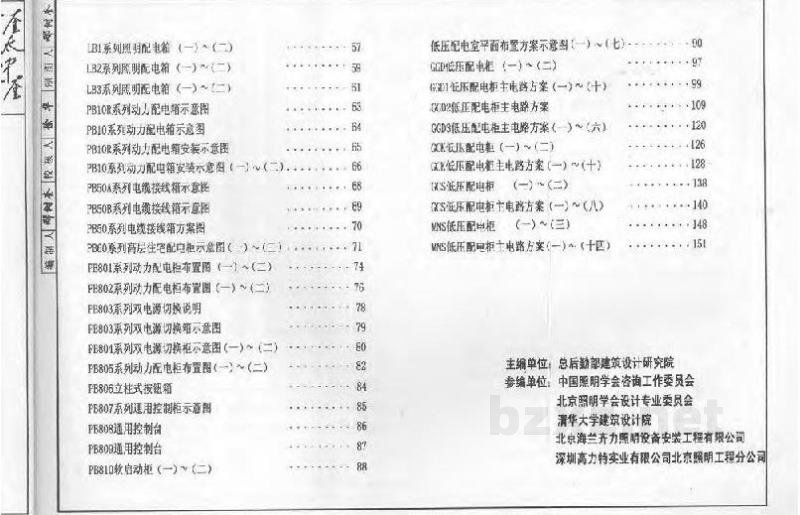 LB1系列照明配电箱 (一)~(二) 57
LB2系列照明配电箱 (一)~(二) 59
LB3系列照明配电箱 (一)~(二) 61
PB10R系列动力配电箱示意图 63
PB10系列动力配电箱示意图 64
PB10R系列动力配电箱安装示意图 65
PB10系列动力配电箱安装示意图 (一)~(二) 66
PB50A系列电缆接线箱示意图 68
PB50B系列电缆接线箱示意图 69
PB50系列电缆接线箱方案图 70
PB60系列高层住宅配电柜示意图(一)~(二) 71
PB801系列动力配电柜布置图 (一)~(二) 74
PB802系列动力配电柜布置图 (一)~(二) 76
PB803系列双电源切换说明 78
PB803系列双电源切换箱示意图 79
PB804系列双电源切换柜示意图(一)~(二) 80
PB805系列动力配电柜布置图(一)~(二) 82
PB806立柱式按钮箱 84
PB807系列通用控制柜示意图 85
PB808通用控制台 86
PB809通用控制台 87
PB810软启动柜 (一)~(二) 88
低压配电室平面布置方案示意图(一)~(七) 90
GGD低压配电柜 (一)~(二) 97
GGD1低压配电柜主电路方案(一)~(十) 99
GGD2低压配电柜主电路方案 109
GGD3低压配电柜主电路方案(一)~(六) 120
GCK低压配电柜(一)~(二) 126
GCK低压配电柜主电路方案(一)~(十) 128
GCS低压配电柜 (一)~(二) 138
GCS低压配电柜主电路方案(一)~(八) 140
MNS低压配电柜 (一)~(三) 148
MNS低压配电柜主电路方案(一)~(十四) 151
主编单位: 总后勤部建筑设计研究院
参编单位: 中国照明学会咨询工作委员会
北京照明学会设计专业委员会
清华大学建筑设计院
北京海兰齐力照明设备安装工程有限公司
深圳高力特实业有限公司北京照明工程分公司